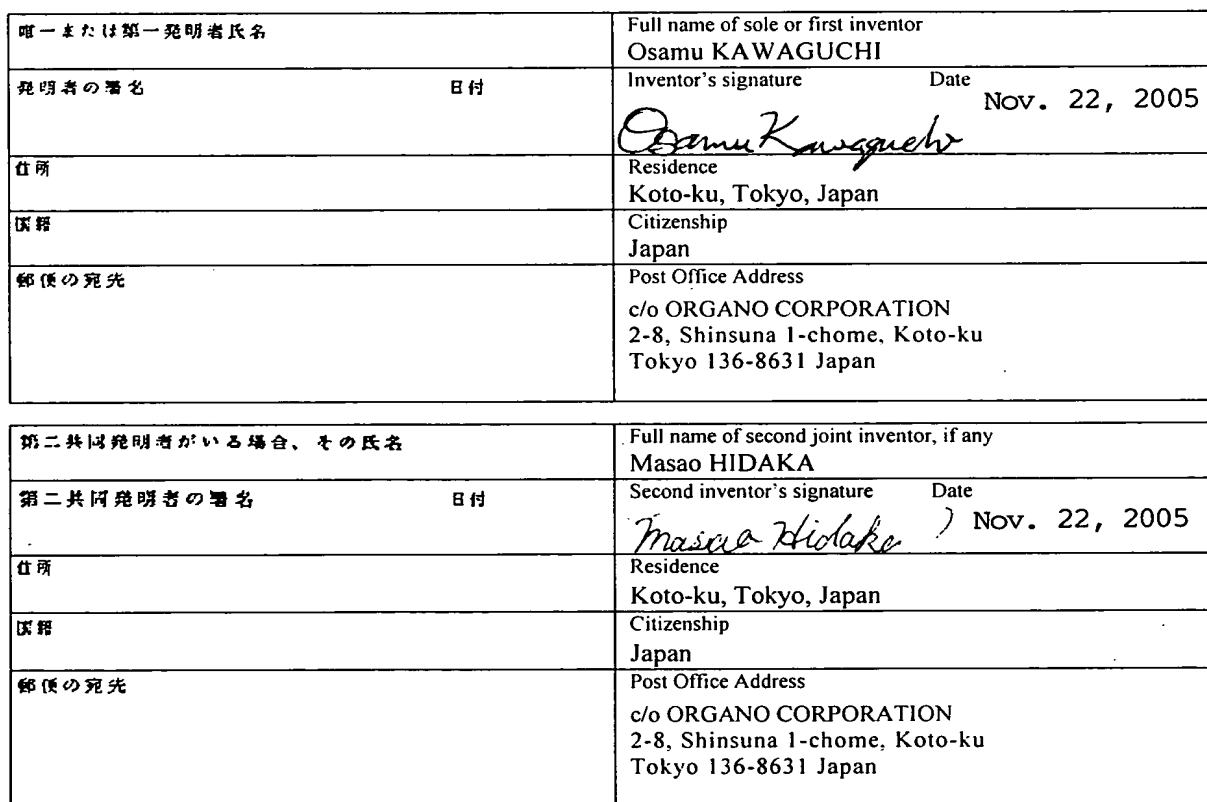 唯一または第一発明者氏名
Full name of sole or first inventor
Osamu KAWAGUCHI
発明者の署名 日付
Inventor's signature Date
Nov. 22, 2005
Osamu Kawaguchi
住所
Residence
Koto-ku, Tokyo, Japan
国籍
Citizenship
Japan
郵便の宛先
Post Office Address
c/o ORGANO CORPORATION
2-8, Shinsuna 1-chome, Koto-ku
Tokyo 136-8631 Japan
第二共同発明者がいる場合、その氏名
Full name of second joint inventor, if any
Masao HIDAKA
第二共同発明者の署名 日付
Second inventor's signature Date
Masao Hidaka
Nov. 22, 2005
住所
Residence
Koto-ku, Tokyo, Japan
国籍
Citizenship
Japan
郵便の宛先
Post Office Address
c/o ORGANO CORPORATION
2-8, Shinsuna 1-chome, Koto-ku
Tokyo 136-8631 Japan